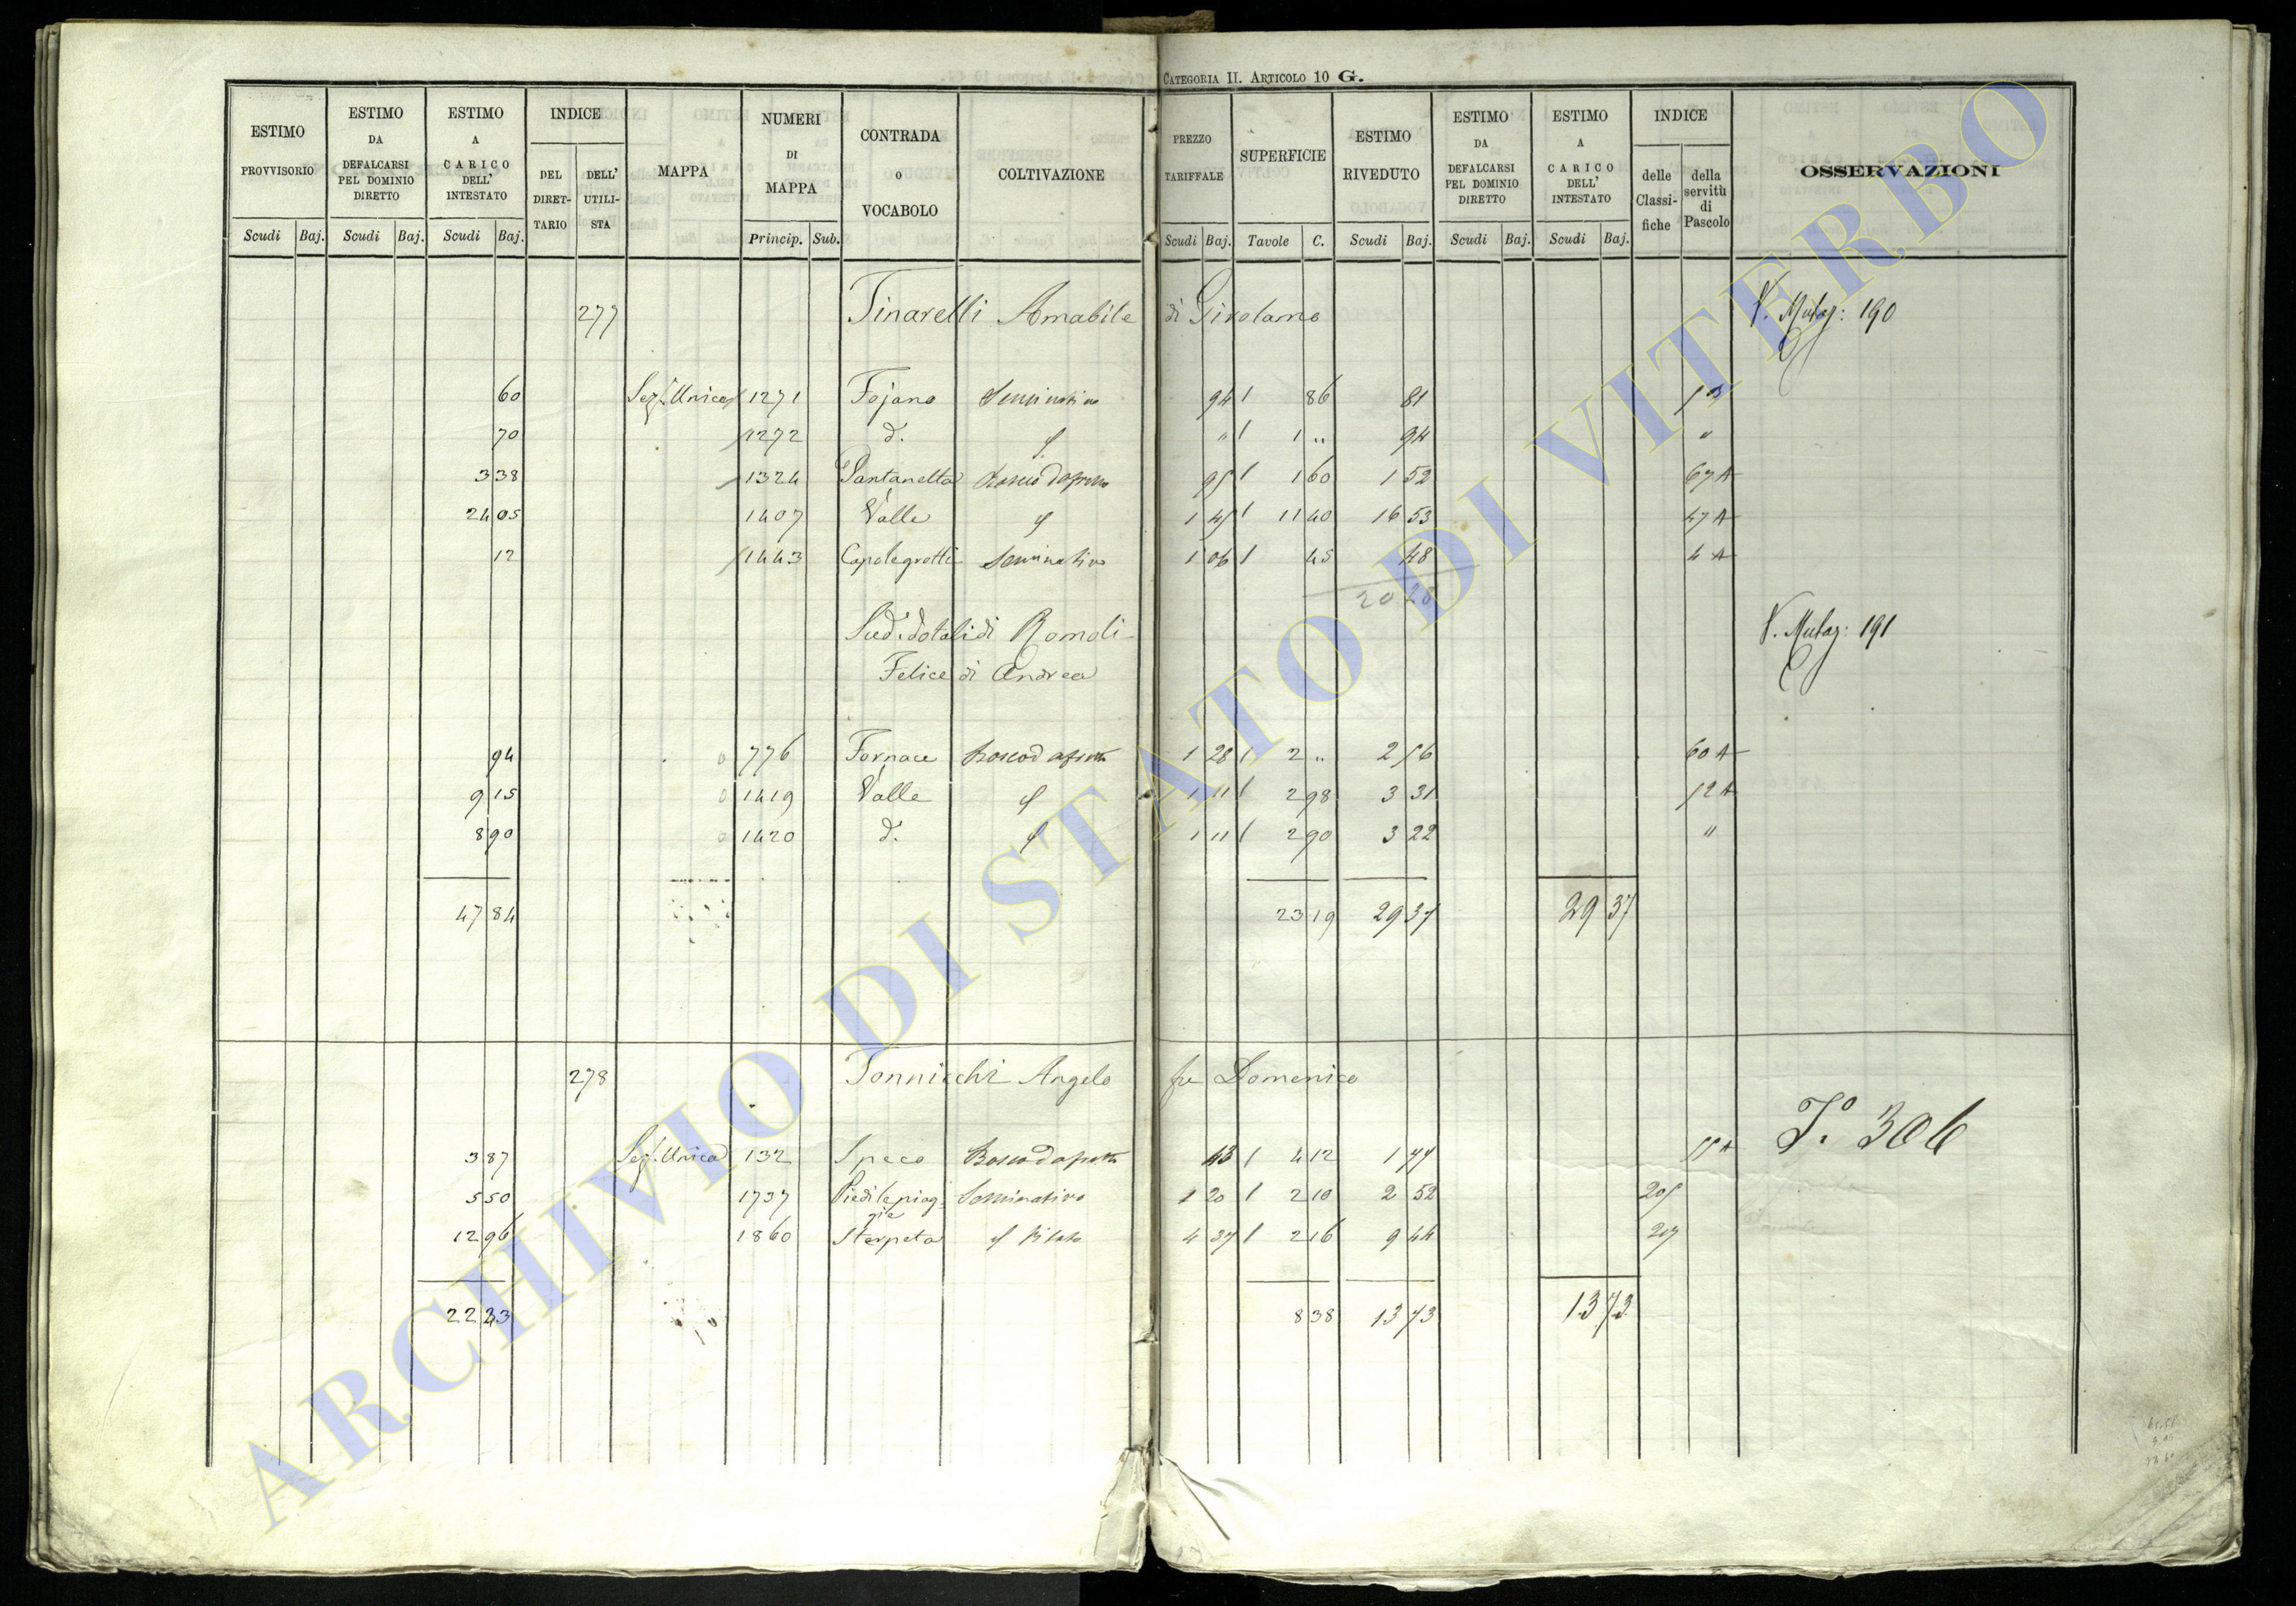 CATEGORIA II. ARTICOLO 10 G.
ESTIMO PROVVISORIO
ESTIMO DA DEFALCARSI PEL DOMINIO DIRETTO
ESTIMO A CARICO DELL' INTESTATO
INDICE
DEL DIRET-TARIO
DELL' UTILI-STA
MAPPA
NUMERI DI MAPPA
CONTRADA O VOCABOLO
COLTIVAZIONE
PREZZO TARIFFALE
SUPERFICIE
ESTIMO RIVEDUTO
ESTIMO DA DEFALCARSI PEL DOMINIO DIRETTO
ESTIMO A CARICO DELL' INTESTATO
INDICE
delle Classi-fiche
della servitù di Pascolo
OSSERVAZIONI
Scudi Baj. Scudi Baj. Scudi Baj. Princip. Sub. Scudi Baj. Tavole C. Scudi Baj. Scudi Baj. Scudi Baj.
277 Tinarelli Amabile di Girolamo V. Mutaz: 190
60 Sez. Unica 1271 Fojano Seminativo 94 1 86 81
70 1272 d. " 1 1 " 94 "
3 38 1324 Pantanella 95 1 1 60 1 52 67 A
24 05 1407 Valle 1 45 1 11 40 16 53 47 A
12 1443 Capolegrotti Seminativo 1 06 1 45 48 4 A
20 28
Sud. dotali di Romoli
Felice di Andrea V. Mutaz: 191
94 776 Fornace Bosco da frutto 1 28 1 2 " 2 56 60 A
9 15 1419 Valle 1 11 1 2 98 3 31 12 A
8 90 1420 d. 1 11 1 2 90 3 22 "
47 84 23 19 29 37 29 37
278 Tonnicchi Angelo fu Domenico
T.o 306
3 87 Sez. Unica 132 Speco Bosco da frutto 43 1 4 12 1 77
5 50 1737 Piedilepiaggie Seminativo 1 20 1 2 10 2 52 205
12 96 1860 Sterpeta Vitato 4 37 1 2 16 9 44 207
22 33 8 38 13 73 13 73
ARCHIVIO DI STATO DI VITERBO